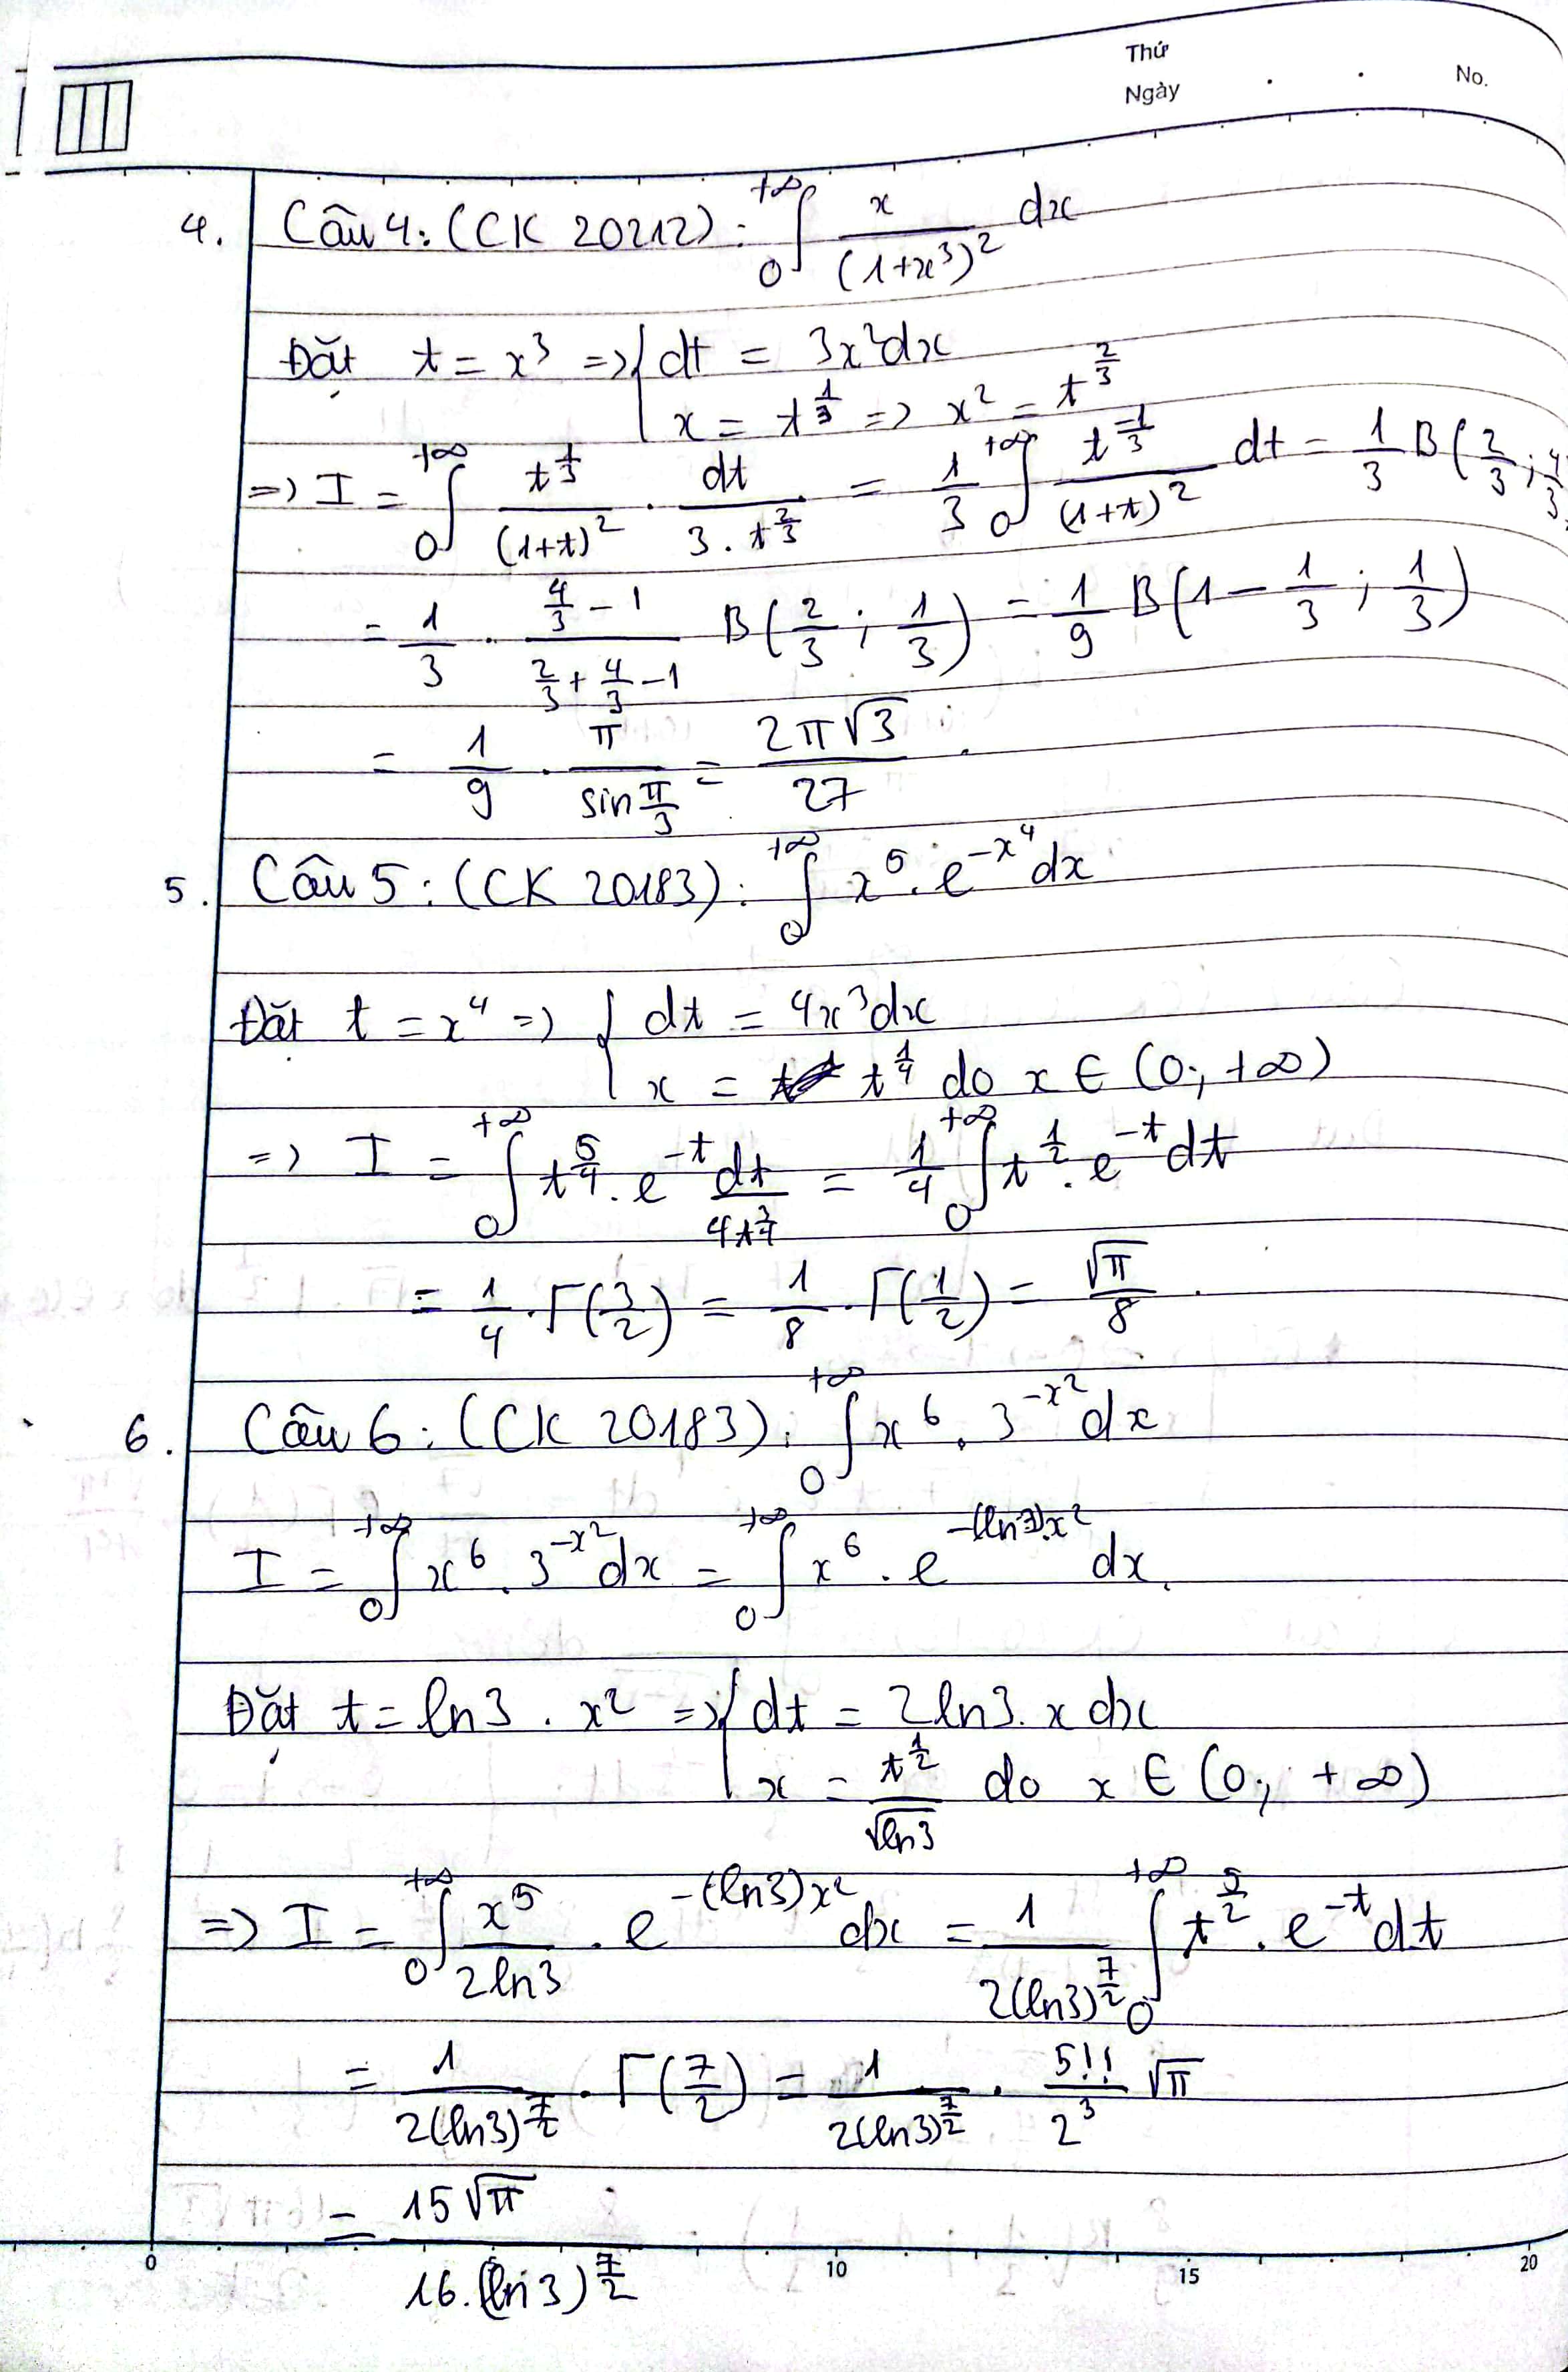 Thứ
Ngày . . No.
4. Câu 4: (CK 20212): ∫₀^{+∞} x/(1+x³)² dx
Đặt t = x³ => { dt = 3x²dx
x = t^{1/3} => x² = t^{2/3}
=> I = ∫₀^{+∞} t^{1/3}/(1+t)² . dt/(3.t^{2/3}) = 1/3 ∫₀^{+∞} t^{-1/3}/(1+t)² dt = 1/3 B(2/3; 4/3)
= 1/3 . (4/3 - 1)/(2/3 + 4/3 - 1) B(2/3; 1/3) = 1/9 B(1 - 1/3; 1/3)
= 1/9 . π/(sin π/3) = 2π√3/27 .
5. Câu 5: (CK 20183): ∫₀^{+∞} x⁵.e^{-x⁴}dx
Đặt t = x⁴ => { dt = 4x³dx
x = t^{1/4} do x ∈ (0; +∞)
=> I = ∫₀^{+∞} t^{5/4}.e^{-t} dt/(4t^{3/4}) = 1/4 ∫₀^{+∞} t^{1/2}.e^{-t}dt
= 1/4 . Γ(3/2) = 1/8 . Γ(1/2) = √π/8 .
6. Câu 6: (CK 20183): ∫₀^{+∞} x⁶.3^{-x²}dx
I = ∫₀^{+∞} x⁶.3^{-x²}dx = ∫₀^{+∞} x⁶.e^{-(ln3).x²} dx.
Đặt t = ln3 . x² => { dt = 2ln3.x dx
x = t^{1/2}/√ln3 do x ∈ (0; +∞)
=> I = ∫₀^{+∞} x⁵/(2ln3) . e^{-(ln3)x²}dx = 1/(2(ln3)^{7/2}) ∫₀^{+∞} t^{5/2}.e^{-t}dt
= 1/(2(ln3)^{7/2}) . Γ(7/2) = 1/(2(ln3)^{7/2}) . 5!!/2³ √π
= 15√π/(16.(ln3)^{7/2})
0 5 10 15 20